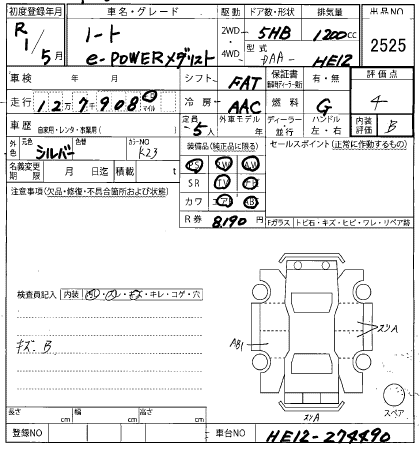 初度登録年月 車名・グレード 駆動 ドア数・形状 排気量 出品NO
R1/5月 ノート e-POWERメダリスト 2WD・4WD 5HB 1200cc 2525
型式 DAA- HE12
車検 年 月 シフト FAT 保証書 有・無 評価点
走行 12万7千908 km マイル 冷房 AAC 燃料 G 4
車歴 自家用・レンタ・事業用( ) 定員 5人 外車モデル 年 ディーラー・並行 ハンドル 左・右 内装評価 B
外色 元色 シルバー 色替 カラーNO K23 装備品(純正品に限る) セールスポイント(正常に作動するもの)
名義変更期限 月 日迄 積載 t PS PW AW
注意事項(欠品・修復・不具合箇所および状態) SR TV ナビ
カワ エアB AB
R券 8,190円 Fガラス トビ石・キズ・ヒビ・ワレ・リペア跡
検査員記入 内装 汚レ・スレ・キズ・キレ・コゲ・穴
キズ B
AB1
スリA
スリA
スペア
長さ cm 幅 cm 高さ cm
登録NO 車台NO HE12-274490